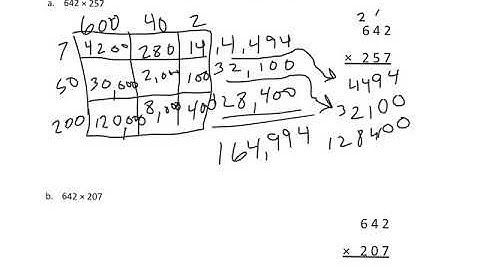 a. 642 × 257
600 40 2
7 4200 280 14 4,494
50 30,000 2,000 100 32,100
200 120,000 8,000 400 128,400
164,994
2 1
642
× 257
4494
32,100
128400
b. 642 × 207
642
× 207